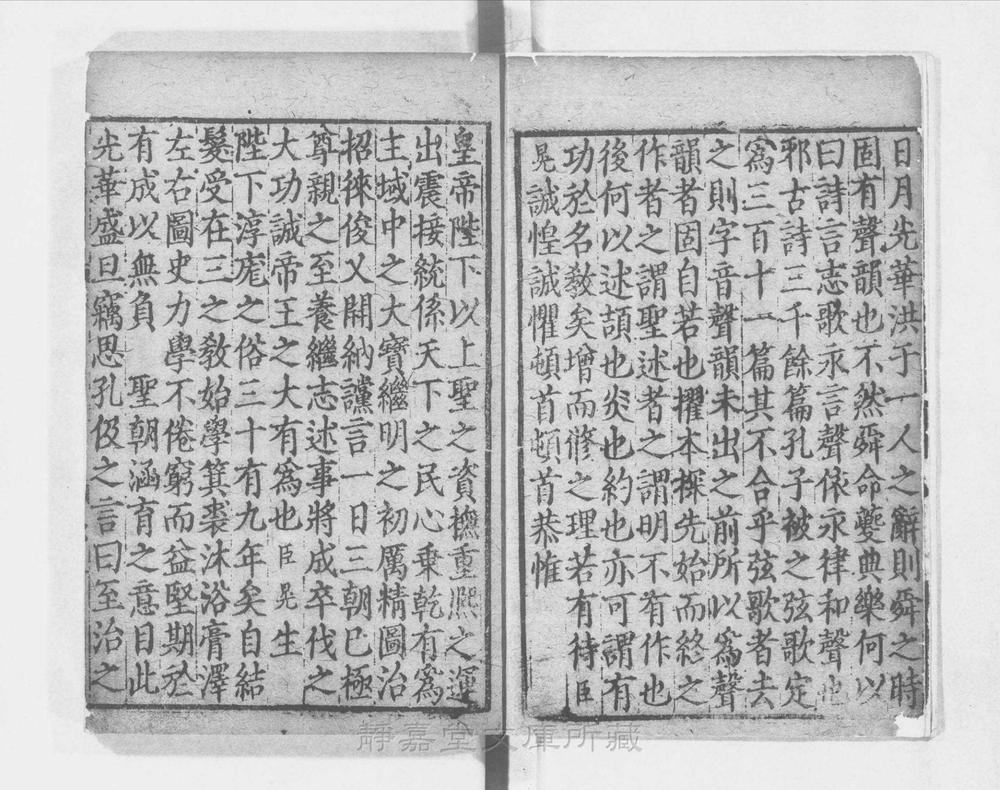 日月光華洪于一人之辭則舜之時
固有聲韻也不然舜命夔典樂何以
曰詩言志歌永言聲依永律和聲也
邪古詩三千餘篇孔子被之弦歌定
爲三百十一篇其不合乎弦歌者去
之則字音聲韻未出之前所以爲聲
韻者固自若也擢本探先始而終之
作者之謂聖述者之謂明不有作也
後何以述頡也炎也約也亦可謂有
功於名敎矣增而修之理若有待臣
晃誠惶誠懼頓首頓首恭惟
皇帝陛下以上聖之資撫重熙之運
出震接統係天下之民心乗乾有爲
主域中之大寶繼明之初厲精圖治
招徠俊乂開納讜言一日三朝已極
尊親之至養繼志述事將成卒伐之
大功誠帝王之大有爲也臣晃生
陛下淳庬之俗三十有九年矣自結
髮受在三之敎始學箕裘沐浴膏澤
左右圖史力學不倦窮而益堅期於
有成以無負聖朝涵育之意目此
光華盛旦竊思孔伋之言曰至治之
靜嘉堂文庫所藏